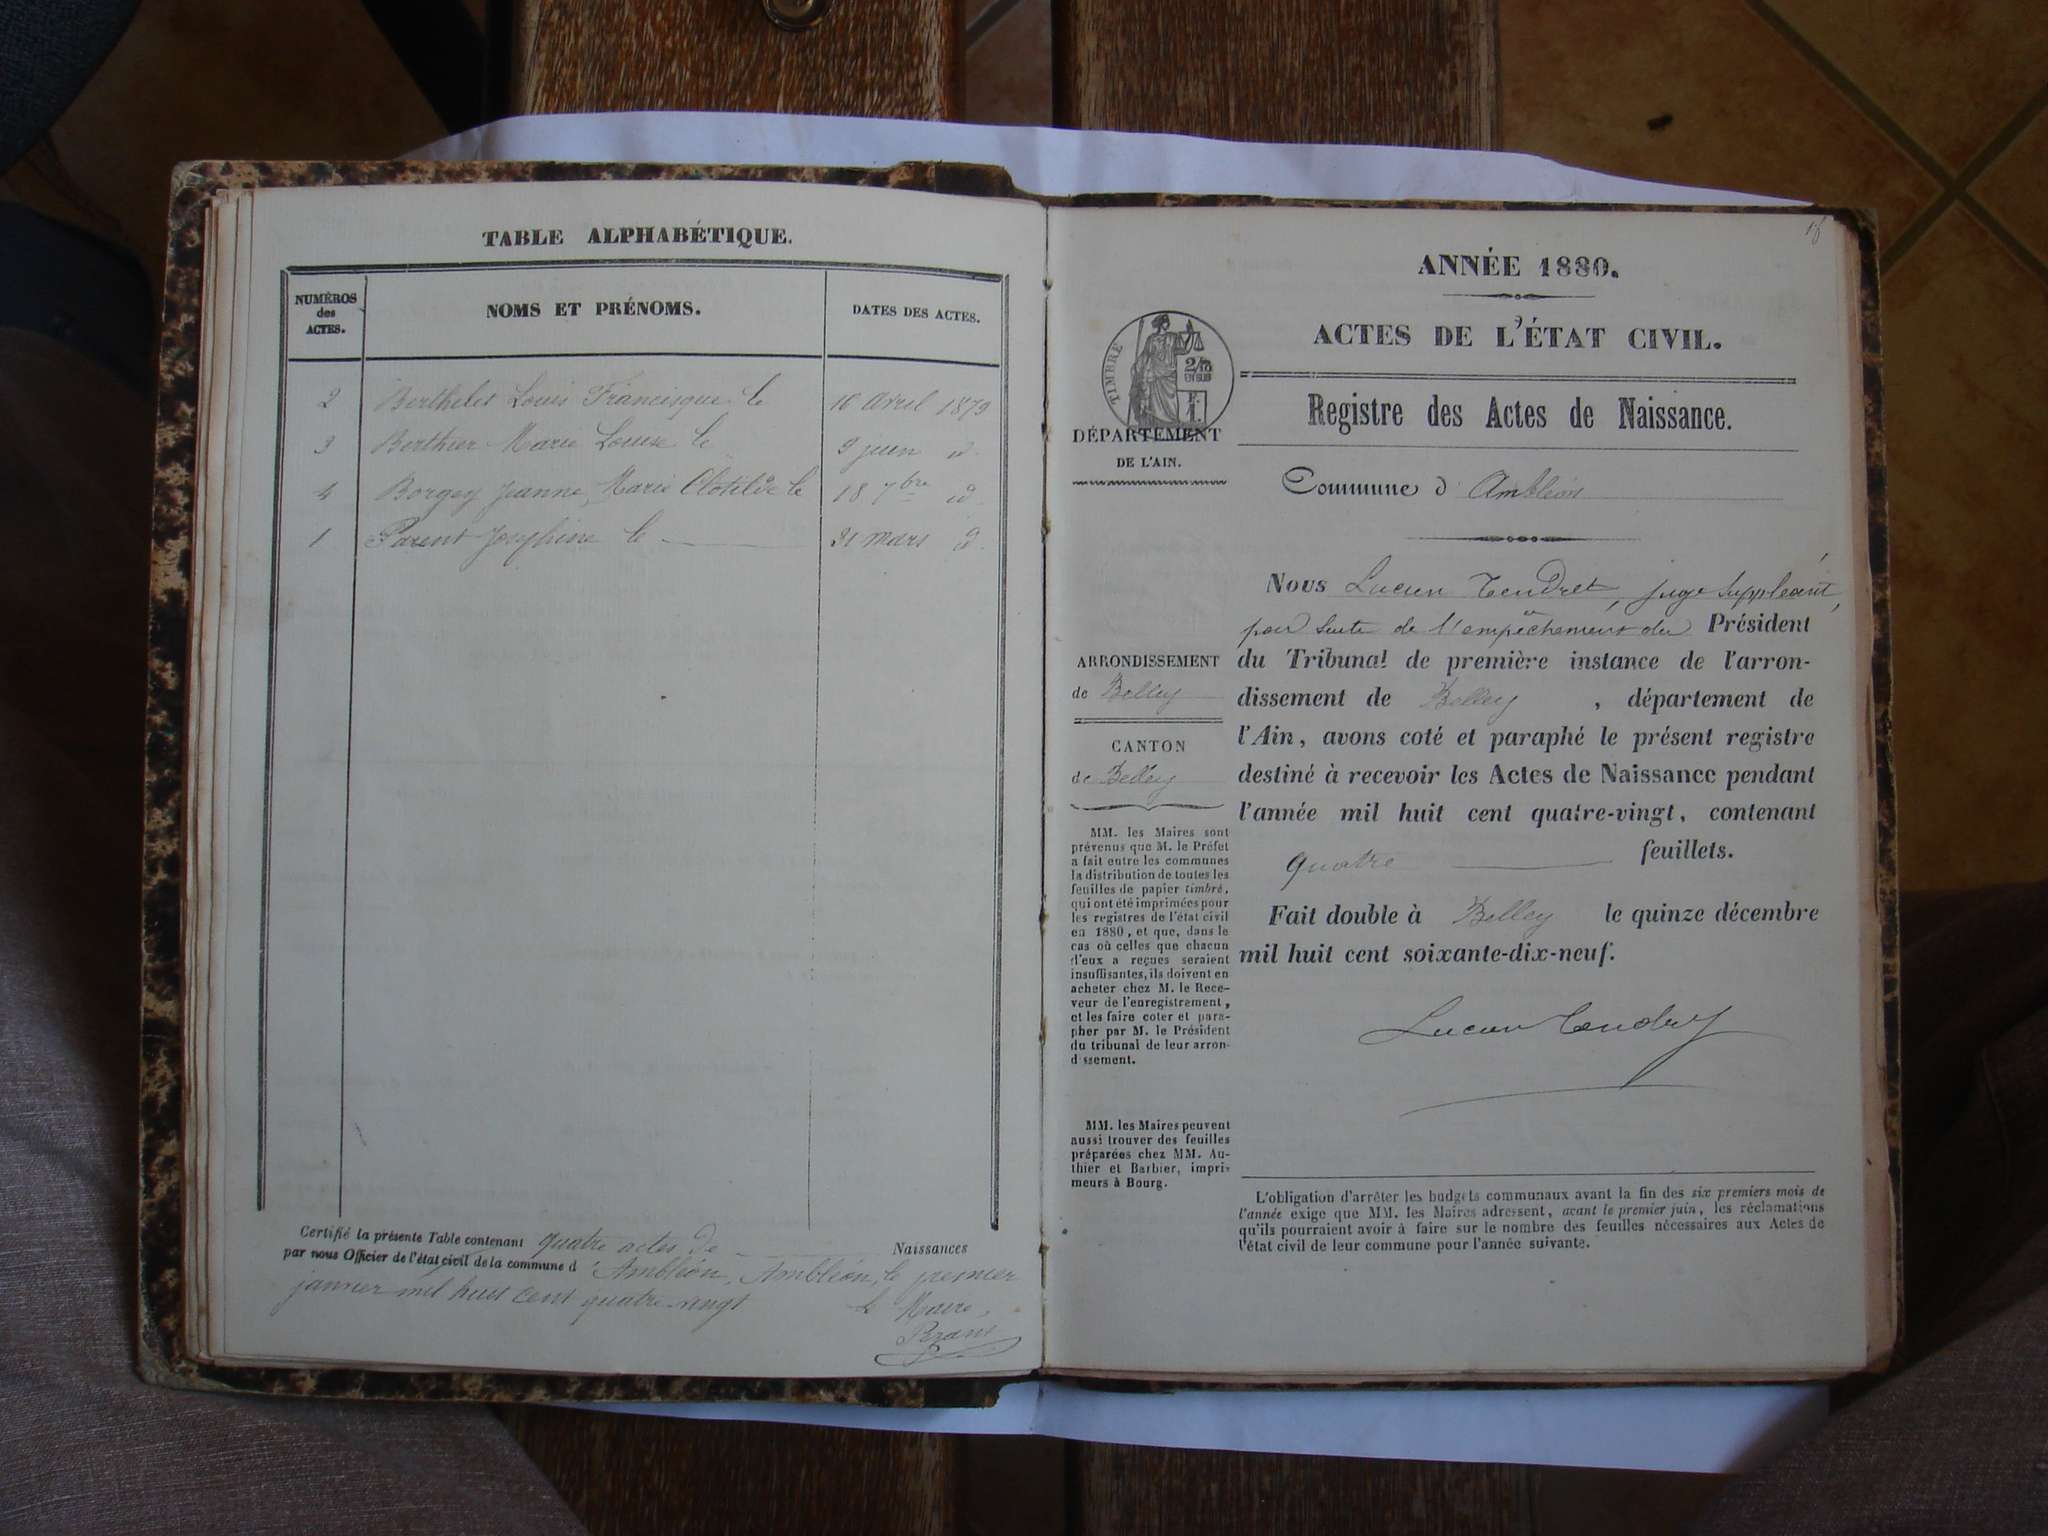 TABLE ALPHABÉTIQUE.
NUMÉROS
des
ACTES.
NOMS ET PRÉNOMS.
DATES DES ACTES.
2 Berthelet Louis Francisque le 16 avril 1879
3 Berthier Marie Louise le 9 juin id.
4 Borgey Jeanne, Marie Clotilde le 18 7bre id.
1 Parent Joséphine le 31 mars id.
Certifié la présente Table contenant quatre actes de Naissances
par nous Officier de l'état civil de la commune d'Ambléon, Ambléon, le premier
janvier mil huit cent quatre-vingt
le Maire,
ANNÉE 1880.
ACTES DE L'ÉTAT CIVIL.
TIMBRE
2/10
EN SUS
Registre des Actes de Naissance.
DÉPARTEMENT
DE L'AIN.
Commune d'Ambléon
Nous Lucien Tendret, juge suppléant,
par suite de l'empêchement du Président
du Tribunal de première instance de l'arron-
dissement de Belley, département de
l'Ain, avons coté et paraphé le présent registre
destiné à recevoir les Actes de Naissance pendant
l'année mil huit cent quatre-vingt, contenant
quatre feuillets.
Fait double à Belley le quinze décembre
mil huit cent soixante-dix-neuf.
Lucien Tendret
ARRONDISSEMENT
de Belley
CANTON
de Belley
MM. les Maires sont
prévenus que M. le Préfet
a fait entre les communes
la distribution de toutes les
feuilles de papier timbré,
qui ont été imprimées pour
les registres de l'état civil
en 1880, et que, dans le
cas où celles que chacun
d'eux a reçues seraient
insuffisantes, ils doivent en
acheter chez M. le Rece-
veur de l'enregistrement,
et les faire coter et para-
pher par M. le Président
du tribunal de leur arron-
d ssement.
MM. les Maires peuvent
aussi trouver des feuilles
préparées chez MM. Au-
thier et Barbier, impri-
meurs à Bourg.
L'obligation d'arrêter les budgets communaux avant la fin des six premiers mois de
l'année exige que MM. les Maires adressent, avant le premier juin, les réclamations
qu'ils pourraient avoir à faire sur le nombre des feuilles nécessaires aux Actes de
l'état civil de leur commune pour l'année suivante.